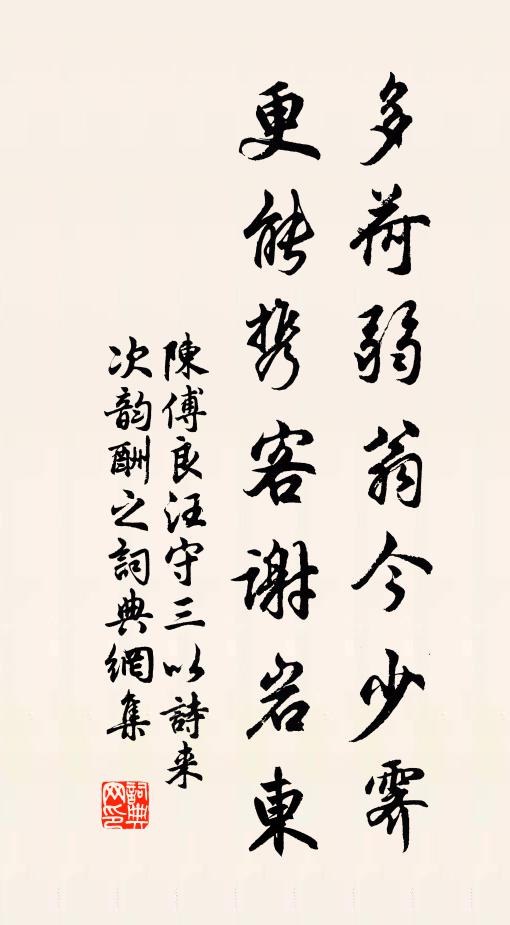 多荷弱翁今少霽
更能携客谢岩東
陳傅良汪守三以詩来
次韵酬之詞典網集
詞典网印